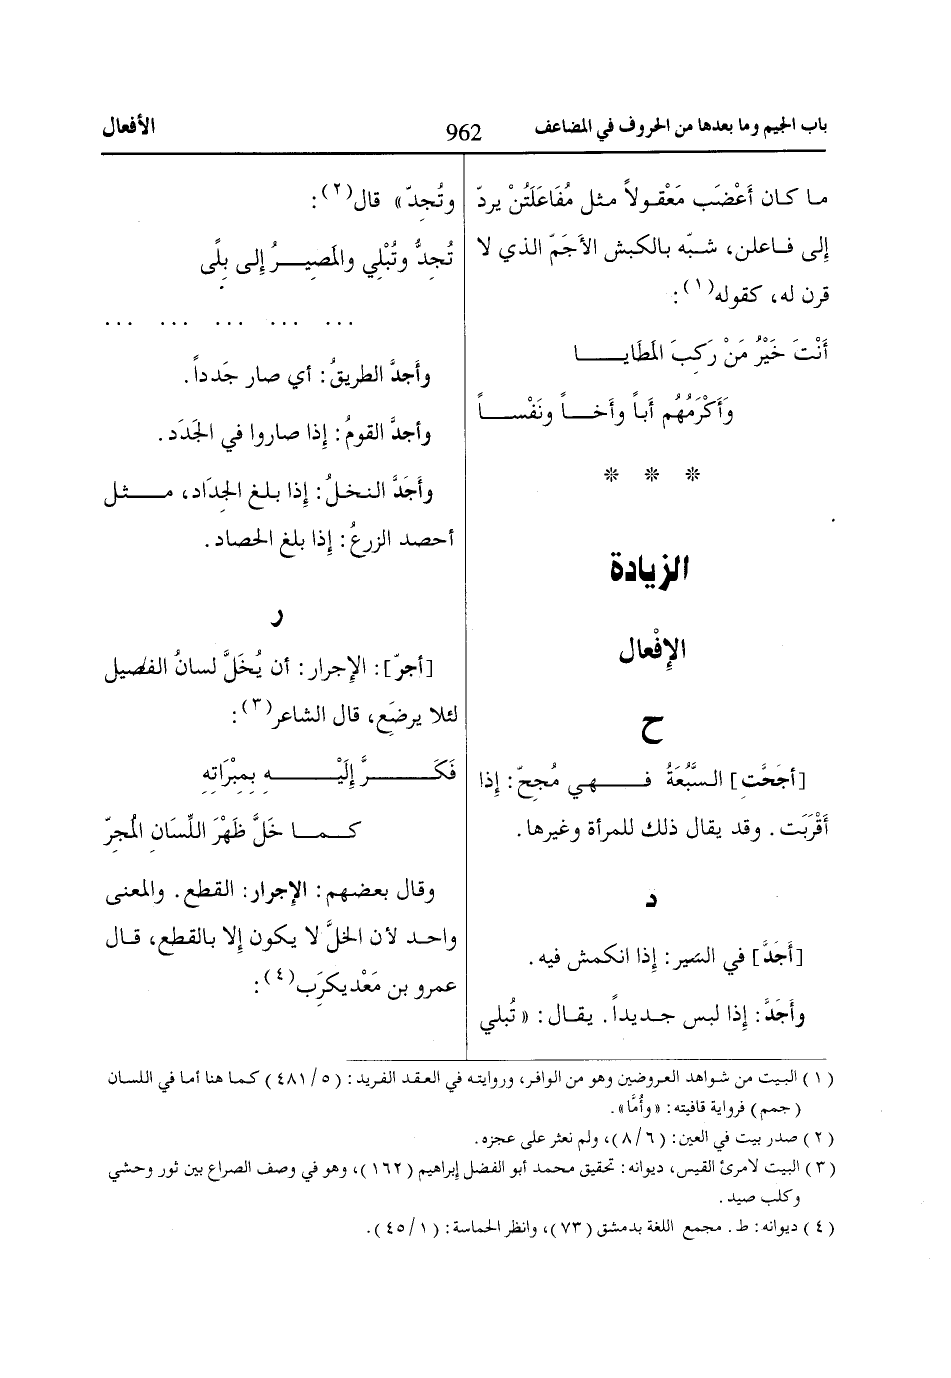 باب الجيم وما بعدها من الحروف في المضاعف
962
الأفعال
ما كان أَعْضَب مَعْقولاً مثل مُفَاعَلَتُنْ يردّ
إلى فاعلن، شبّه بالكبش الأَجَمّ الذي لا
قرن له، كقوله(١):
أَنْتَ خَيْرُ مَنْ رَكِبَ المَطَايـــا
وَأَكْرَمُهُم أَباً وأَخـــاً ونَفْســـاً
* * *
الزيادة
الإفْعال
ح
[أجَحَّت] السَّبُعَةُ فـــهي مُجِحّ: إذا
أَقْرَبَت. وقد يقال ذلك للمرأة وغيرها.
د
[أَجَدَّ] في السَير: إذا انكمش فيه.
وأَجَدَّ: إذا لبس جديداً. يقال: «تُبلي
وتُجدّ» قال(٢):
تُجدُّ وتُبْلي والمَصِيـــرُ إلى بِلًى
... ... ... ... ...
وأَجدَّ الطريقُ: أي صار جَدداً.
وأجدَّ القومُ: إذا صاروا في الجَدَد.
وأَجَدَّ النخلُ: إذا بلغ الجِدَاد، مـــثل
أحصد الزرعُ: إذا بلغ الحصاد.
ر
[أجرّ]: الإجرار: أن يُخَلَّ لسانُ الفصيل
لئلا يرضَع، قال الشاعر(٣):
فَكَـــرَّ إِلَيْـــهِ بِمِبْرَاتِهِ
كـــما خَلَّ ظَهْرَ اللِّسَانِ المُجِرّ
وقال بعضهم: الإجرار: القطع. والمعنى
واحد لأن الخلَّ لا يكون إلا بالقطع، قال
عمرو بن مَعْديكرَب(٤):
(١) البيت من شواهد العروضين وهو من الوافر، وروايته في العقد الفريد: (٤٨١/٥) كما هنا أما في اللسان
(جمم) فرواية قافيته: «وأُمَّا».
(٢) صدر بيت في العين: (٨/٦)، ولم نعثر على عجزه.
(٣) البيت لامرئ القيس، ديوانه: تحقيق محمد أبو الفضل إبراهيم (١٦٢)، وهو في وصف الصراع بين ثور وحشي
وكلب صيد.
(٤) ديوانه: ط. مجمع اللغة بدمشق (٧٣)، وانظر الحماسة: (٤٥/١).